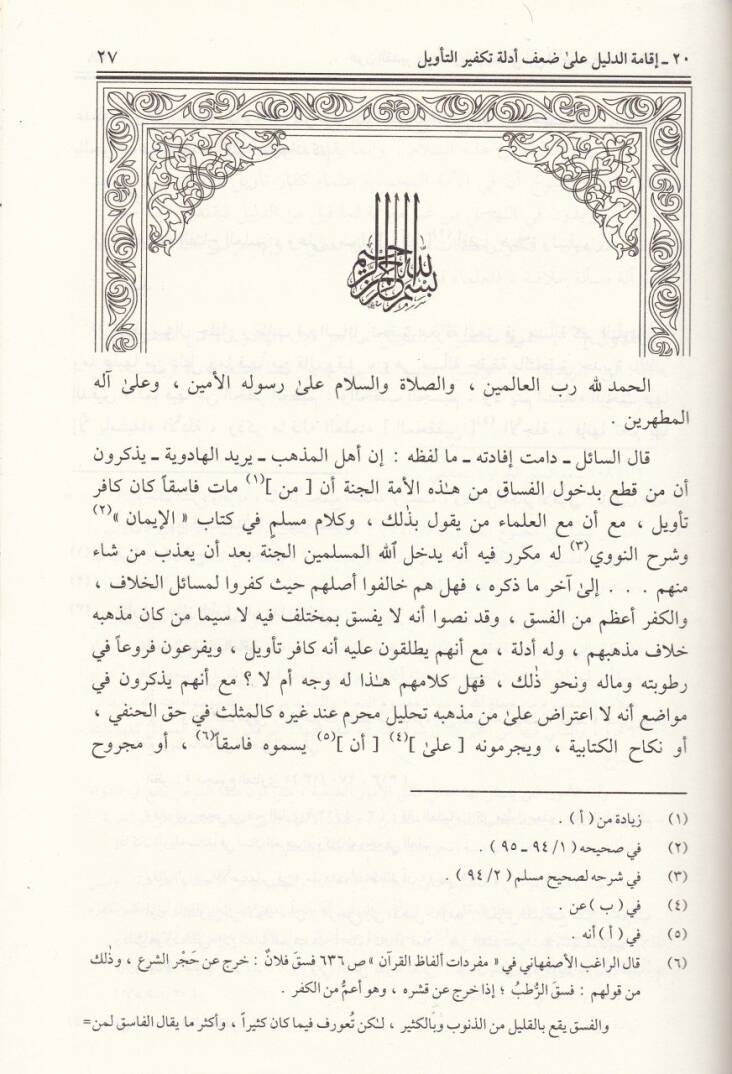 ٢٠ ـ إقامة الدليل علىٰ ضعف أدلة تكفير التأويل ٢٧
بسم الله الرحمن الرحيم
الحمد لله رب العالمين ، والصلاة والسلام علىٰ رسوله الأمين ، وعلىٰ آله
المطهرين .
قال السائل ـ دامت إفادته ـ ما لفظه : إن أهل المذهب ـ يريد الهادوية ـ يذكرون
أن من قطع بدخول الفساق من هـٰذه الأمة الجنة أن [ من ](١) مات فاسقاً كان كافر
تأويل ، مع أن مع العلماء من يقول بذٰلك ، وكلام مسلمٍ في كتاب « الإيمان »(٢)
وشرح النووي(٣) له مكرر فيه أنه يدخل ٱلله المسلمين الجنة بعد أن يعذب من شاء
منهم . . . إلىٰ آخر ما ذكره ، فهل هم خالفوا أصلهم حيث كفروا لمسائل الخلاف ،
والكفر أعظم من الفسق ، وقد نصوا أنه لا يفسق بمختلف فيه لا سيما من كان مذهبه
خلاف مذهبهم ، وله أدلة ، مع أنهم يطلقون عليه أنه كافر تأويل ، ويفرعون فروعاً في
رطوبته وماله ونحو ذٰلك ، فهل كلامهم هـٰذا له وجه أم لا ؟ مع أنهم يذكرون في
مواضع أنه لا اعتراض علىٰ من مذهبه تحليل محرم عند غيره كالمثلث في حق الحنفي ،
أو نكاح الكتابية ، ويجرمونه [ علىٰ ](٤) [ أن ](٥) يسموه فاسقاً(٦) ، أو مجروح
(١) زيادة من ( أ ) .
(٢) في صحيحه ( ١/ ٩٤ ـ ٩٥ ) .
(٣) في شرحه لصحيح مسلم ( ٢/ ٩٤ ) .
(٤) في ( ب ) عن .
(٥) في ( أ ) أنه .
(٦) قال الراغب الأصفهاني في « مفردات ألفاظ القرآن » ص ٦٣٦ فسقَ فلانٌ : خرج عن حَجْر الشرع ، وذٰلك
من قولهم : فسقَ الرُّطبُ ؛ إذا خرج عن قشره ، وهو أعمُّ من الكفر .
والفسق يقع بالقليل من الذنوب وبالكثير ، لـٰكن تُعورف فيما كان كثيراً ، وأكثر ما يقال الفاسق لمن=